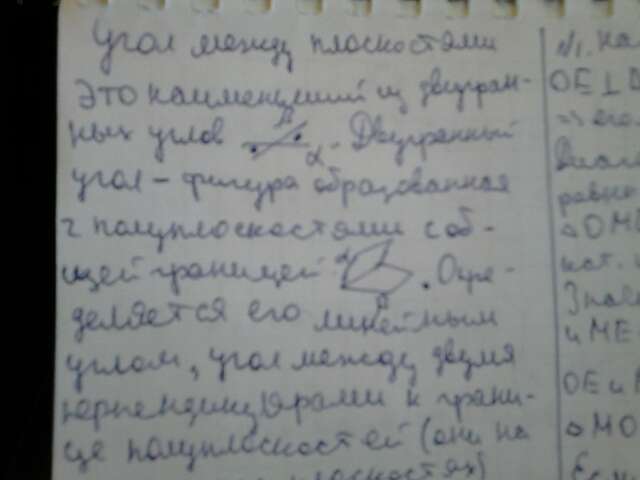 Угол между плоскостями
это наименьший из двугран-
ных углов α β. Двугранный
угол – фигура образованная
2 полуплоскостями с об-
щей границей α β. Опре-
деляется его линейным
углом, угол между двумя
перпендикулярами к грани-
це полуплоскостей (они на
плоскостях)
N1. на
OE ⊥
⇒ его
Диаго
равны
△ OMO
кат.
Знач
и ME
OE и
△ MO
Если